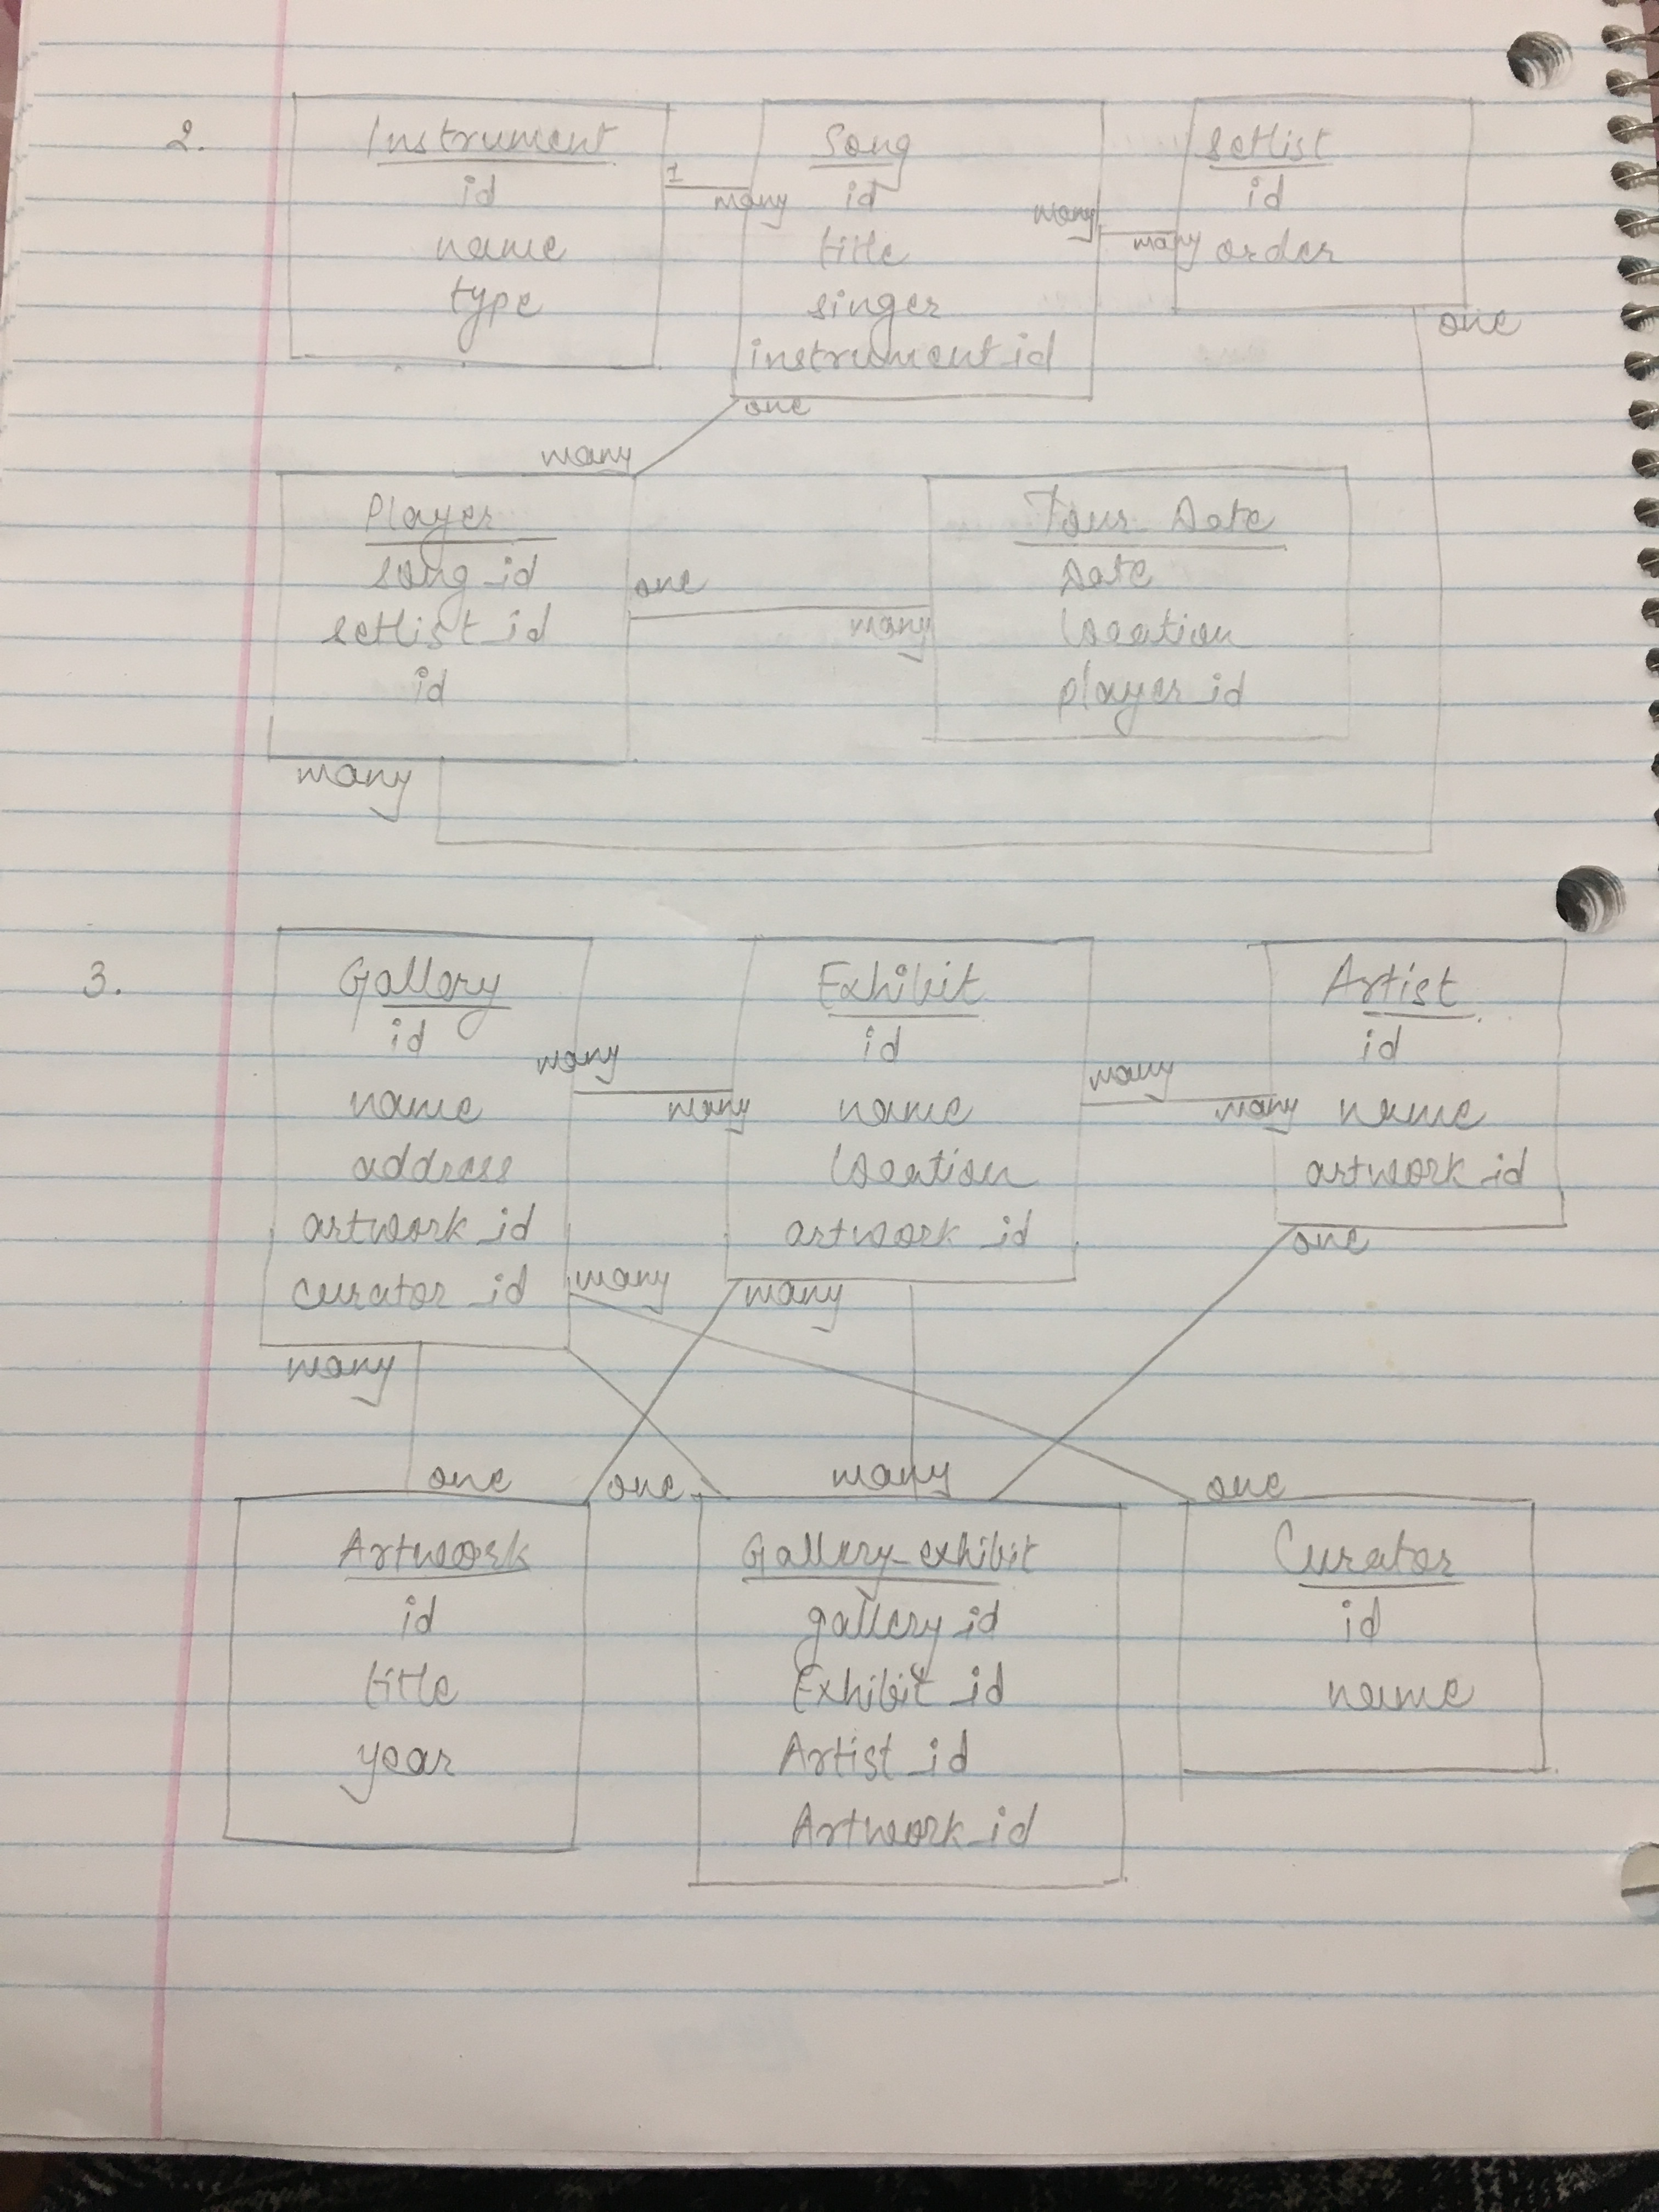 2.
Instrument
id
name
type
1
many
Song
id
title
singer
instrument_id
many
many
Setlist
id
order
one
one
many
Player
song_id
setlist_id
id
one
many
Tour_Date
Date
location
player_id
many
3.
Gallery
id
name
address
artwork_id
curator_id
many
many
Exhibit
id
name
location
artwork_id
many
many
Artist
id
name
artwork_id
one
many
many
many
one
one
many
one
Artwork
id
title
year
Gallery_exhibit
gallery_id
Exhibit_id
Artist_id
Artwork_id
Curator
id
name